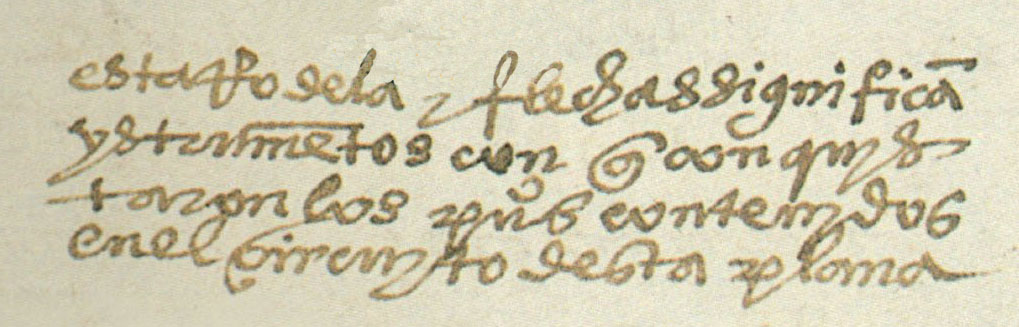 esta Rodela y flechas significã
ystrumẽtos con q̃ conquys
taron los pūs contenydos
en el circuyto desta plana